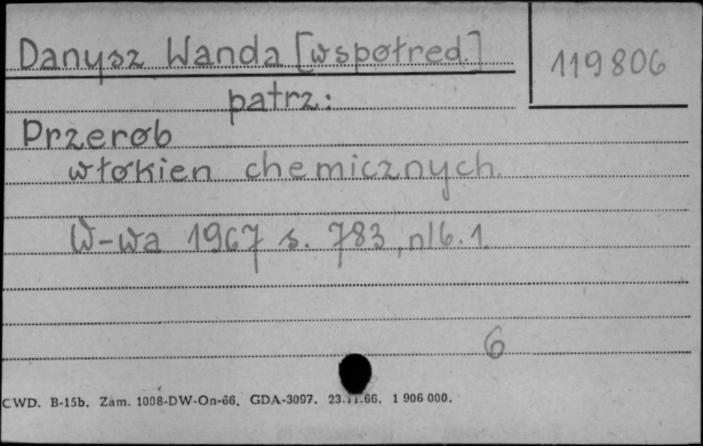 Danysz Wanda [współred.]
119806
patrz:
Przerób
włókien chemicznych.
W-wa 1967 s. 783, nlb. 1.
6
CWD. B-15b. Zam. 1008-DW-On-66. GDA-3097. 23.11.66. 1 906 000.